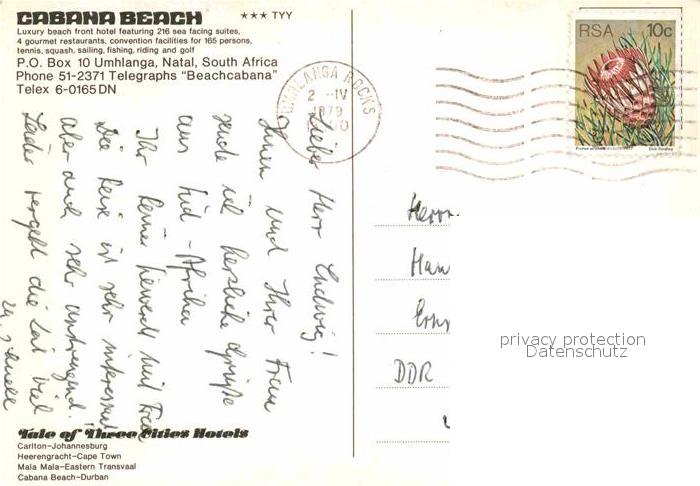 CABANA BEACH *** TYY
Luxury beach front hotel featuring 216 sea facing suites,
4 gourmet restaurants, convention facilities for 165 persons,
tennis, squash, sailing, fishing, riding and golf
P.O. Box 10 Umhlanga, Natal, South Africa
Phone 51-2371 Telegraphs "Beachcabana"
Telex 6-0165DN
UMHLANGA ROCKS
2 -IV
1979
RSA 10c
Lieber Herr Ludwig!
Ihnen und Ihrer Frau
sende ich herzliche Grüße
aus Süd-Afrika
Ihr Heinz mit Frau
Die Reise ist sehr interessant
aber auch sehr anstrengend!
Leider vergeht die Zeit viel
zu schnell
Herrn
DDR
privacy protection
Datenschutz
Tale of Three Cities Hotels
Carlton-Johannesburg
Heerengracht-Cape Town
Mala Mala-Eastern Transvaal
Cabana Beach-Durban